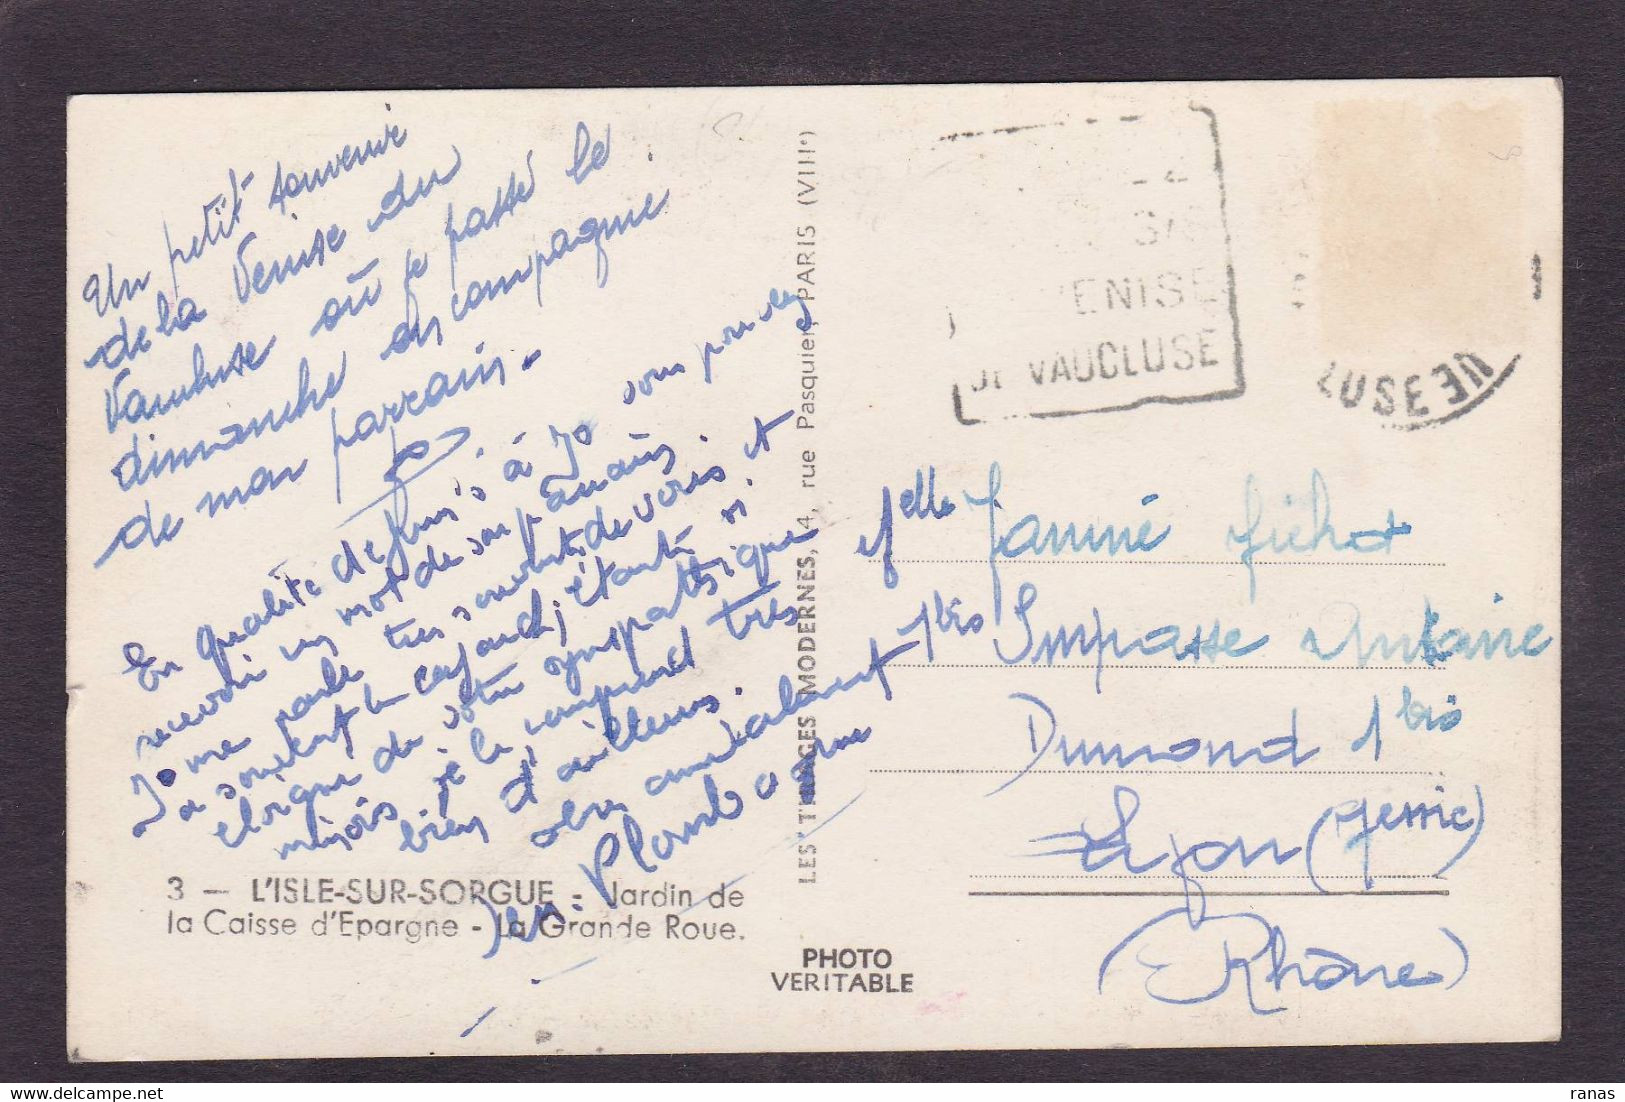 Un petit souvenir
de la Venise du
Vaucluse où je passe le
dimanche en compagnie
de mon parrain -
Jo
En qualité de à Jo vous pouvez
recevoir un mot de sa part
Jo me parle très souvent de vous et
a souvent le cafard, étant si
éloigné de votre sympathique
minois, je le comprend très
bien d'ailleurs.
bien amicalement
3 — L'ISLE-SUR-SORGUE - Jardin de
la Caisse d'Epargne - La Grande Roue.
LES TIRAGES MODERNES, 4, rue Pasquier, PARIS (VIIIe)
PHOTO
VERITABLE
ENISE
DE VAUCLUSE
LUSE
elle Janine
1bis Impasse Antoine
Dumond 1bis
Lyon
(Rhône)
ranas